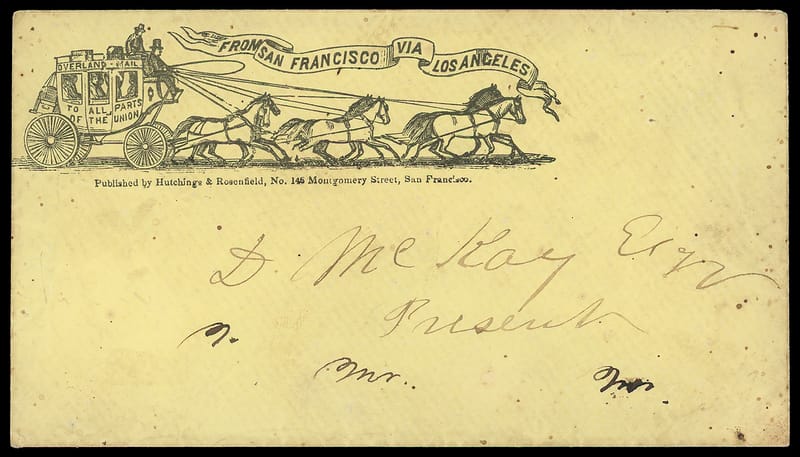 FROM SAN FRANCISCO VIA LOS ANGELES
OVERLAND-MAIL
TO ALL PARTS
OF THE UNION
Published by Hutchings & Rosenfield, No. 146 Montgomery Street, San Francisco.
D. McKay Esqr
Present
Mr.